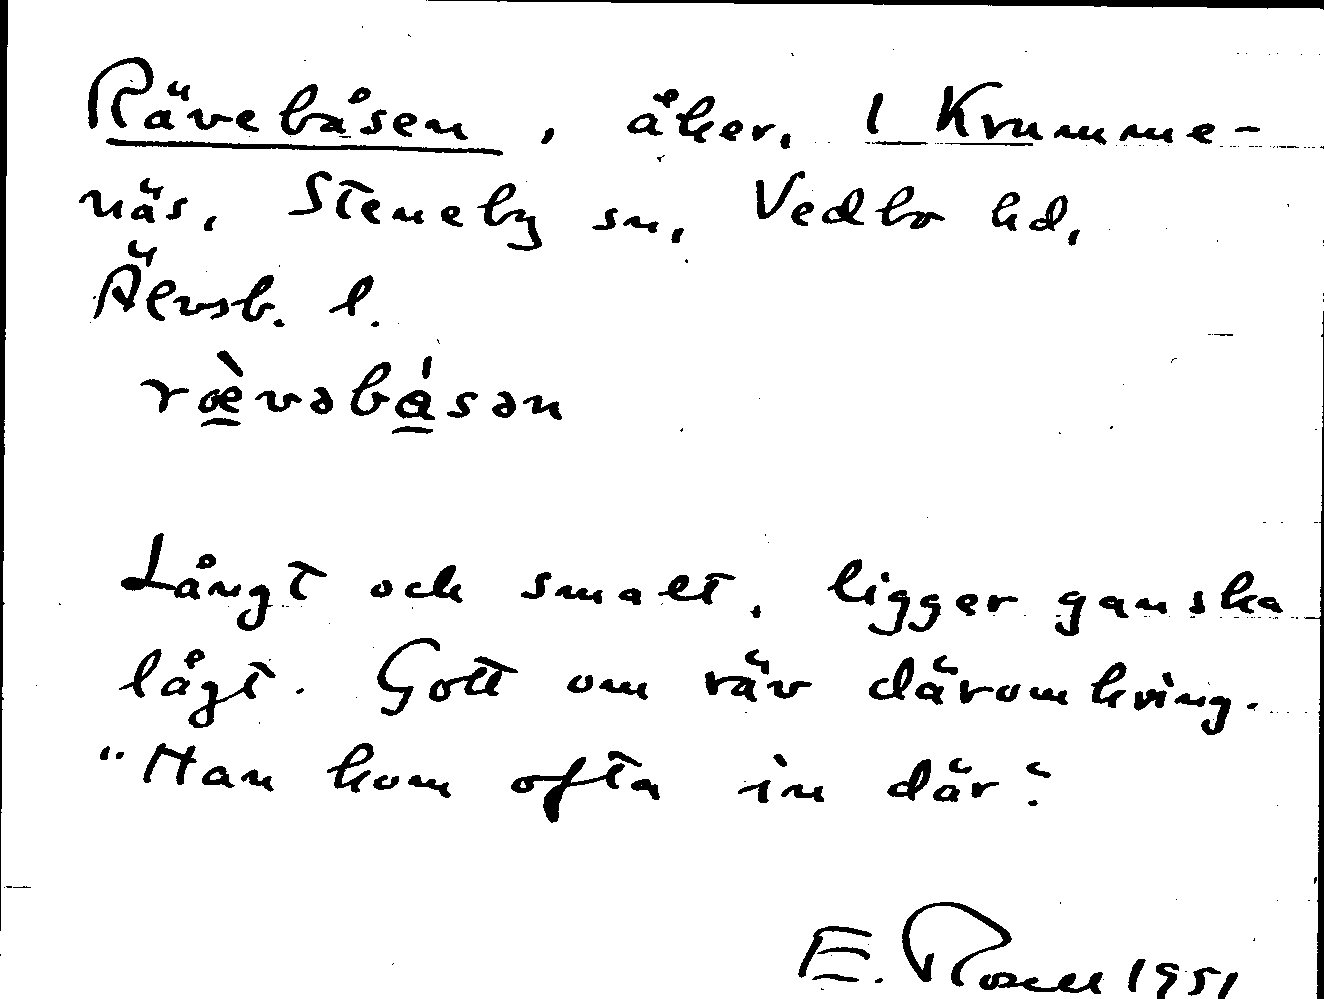 Rävebåsen, åker, 1 Krumme-
näs, Steneby sn, Vedbo hd,
Älvsb. l.
ræ̀vəbásən
Långt och smalt, ligger ganska
lågt. Gott om räv däromkring.
"Han kom ofta in där".
E. Rosell 1951